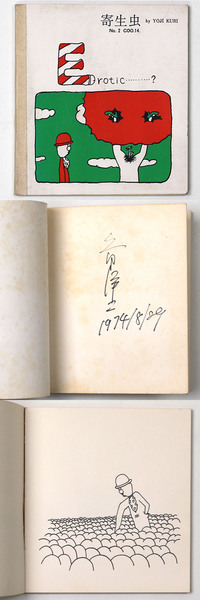 寄生虫 by YOJI KURI
No. 2 COO.14.
Erotic.........?
久里洋二
1974/8/29